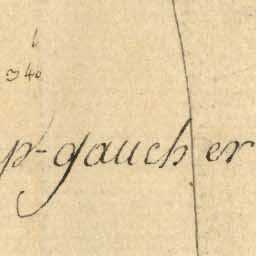 340
p- gaucher